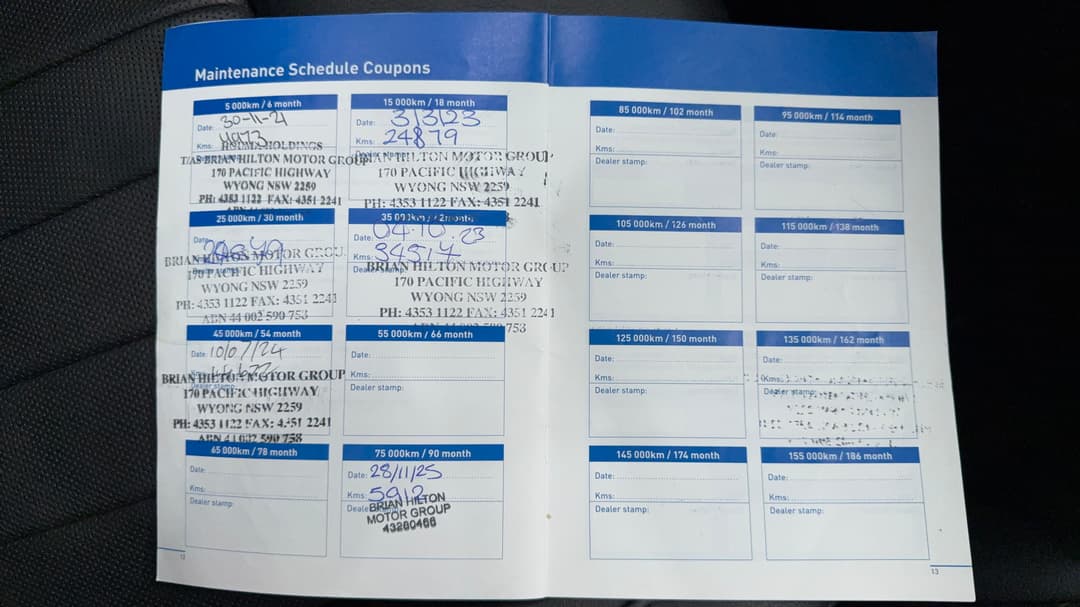 Maintenance Schedule Coupons
5 000km / 6 month
Date: 30-11-21
Kms:
HOLDINGS
T/AS BRIAN HILTON MOTOR GROUP
170 PACIFIC HIGHWAY
WYONG NSW 2259
PH: 4353 1122 FAX: 4351 2241
15 000km / 18 month
Date: 3/3/23
Kms: 24879
HILTON MOTOR GROUP
170 PACIFIC HIGHWAY
WYONG NSW 2259
PH: 4353 1122 FAX: 4351 2241
25 000km / 30 month
Date:
BRIAN HILTON MOTOR GROU
170 PACIFIC HIGHWAY
WYONG NSW 2259
PH: 4353 1122 FAX: 4351 2241
ABN 44 002 590 753
35 000km / 42 month
Date: 04.10.23
Kms: 34517
Dealer stamp:
BRIAN HILTON MOTOR GROUP
170 PACIFIC HIGHWAY
WYONG NSW 2259
PH: 4353 1122 FAX: 4351 2241
45 000km / 54 month
Date: 10/07/24
Kms:
BRIAN HILTON MOTOR GROUP
170 PACIFIC HIGHWAY
WYONG NSW 2259
PH: 4353 1122 FAX: 4351 2241
55 000km / 66 month
Date:
Kms:
Dealer stamp:
65 000km / 78 month
Date:
Kms:
Dealer stamp:
75 000km / 90 month
Date: 28/11/25
Kms: 5912
BRIAN HILTON
MOTOR GROUP
43280466
12
85 000km / 102 month
Date:
Kms:
Dealer stamp:
95 000km / 114 month
Date:
Kms:
Dealer stamp:
105 000km / 126 month
Date:
Kms:
Dealer stamp:
115 000km / 138 month
Date:
Kms:
Dealer stamp:
125 000km / 150 month
Date:
Kms:
Dealer stamp:
135 000km / 162 month
Date:
Kms:
Dealer stamp:
145 000km / 174 month
Date:
Kms:
Dealer stamp:
155 000km / 186 month
Date:
Kms:
Dealer stamp:
13